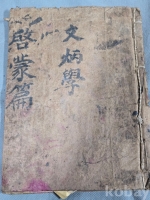 啓蒙篇
文炳學
kobay